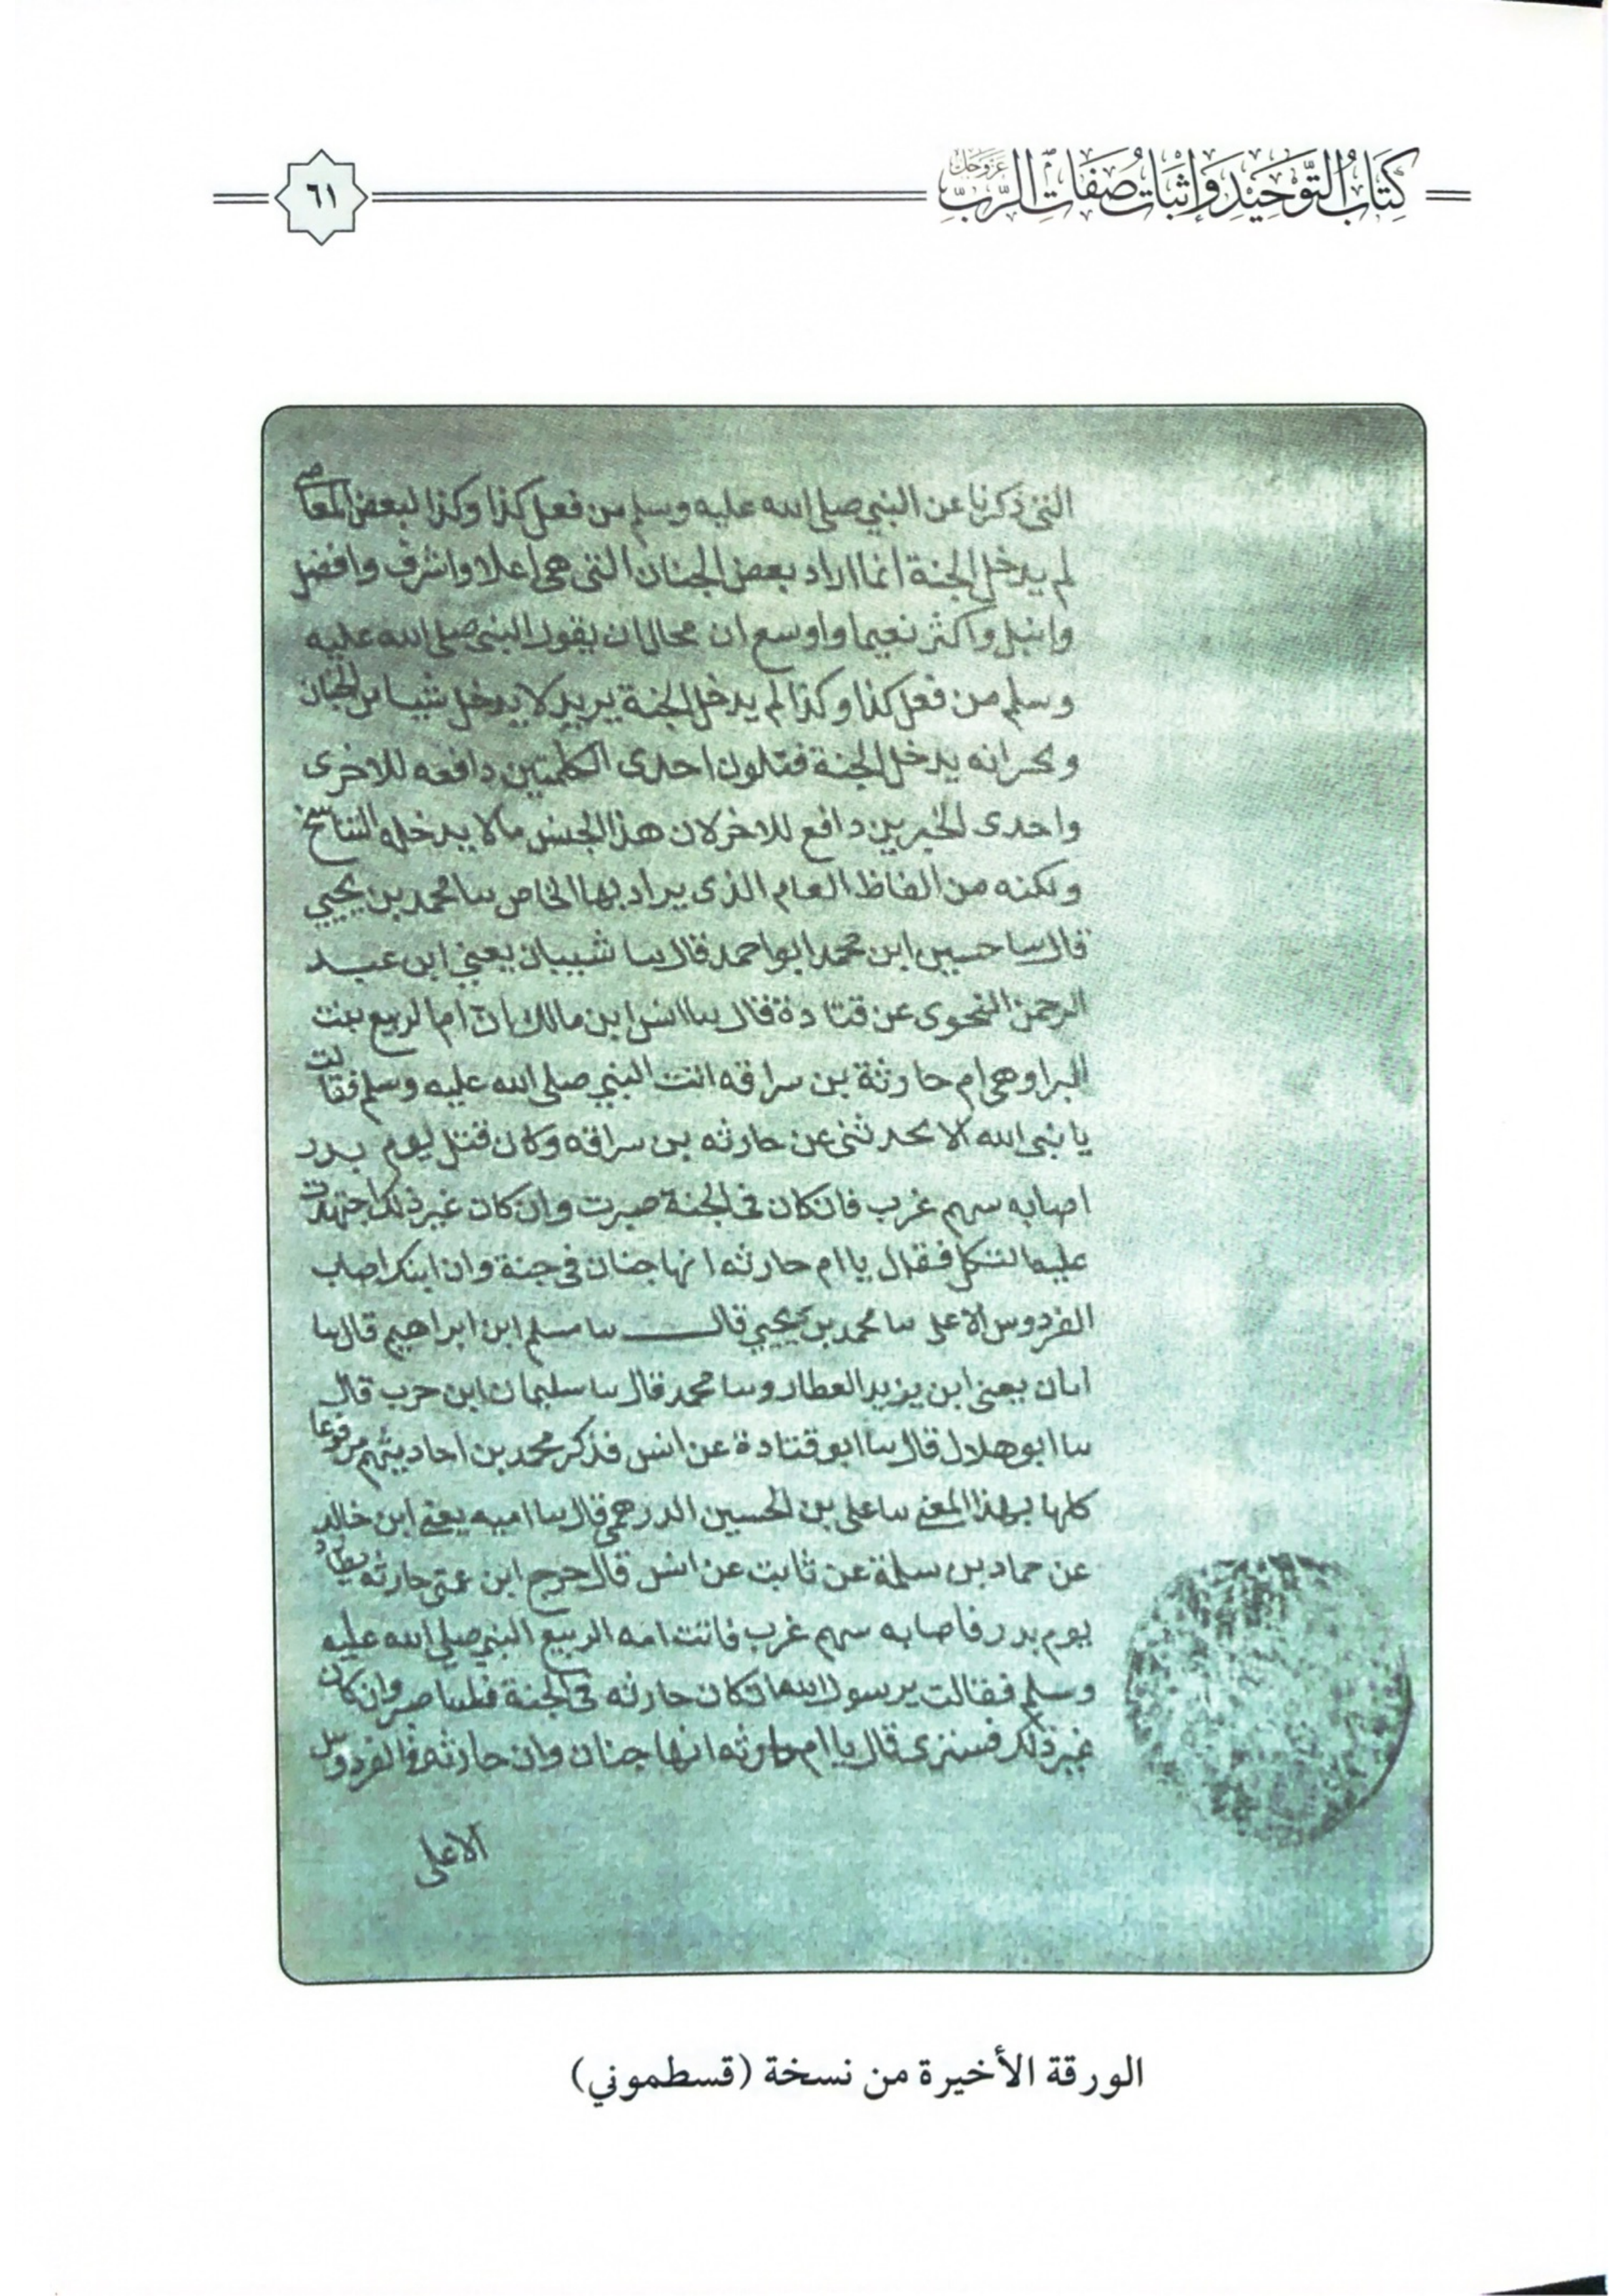 كتاب التوحيد وإثبات صفات الرب عز وجل
٦١
التى ذكرنا عن النبي صلى الله عليه وسلم من فعل كذا وكذا لبعض المعاصي
لم يدخل الجنة انما اراد بعض الجنان التى هى اعلا واشرف وافضل
وانبل واكثر نعيما واوسع ان محالا ان يقول النبى صلى الله عليه
وسلم من فعل كذا وكذا لم يدخل الجنة يريد لا يدخل شيا من الجنان
انه يدخل الجنة فتكون احدى الكلمتين دافعه للاخرى
واحدى الخبرين دافع للاخر لان هذا الجنس مالا يدخله التناسخ
ولكنه من الفاظ العام الذى يراد بها الخاص سا محمد بن يحيى
قال سا حسين ابن محمد ابو احمد قال سا شيبان يعني ابن عبد
الرحمن النحوى عن قتادة قال سا انس ابن مالك ان ام الربيع بنت
البرا وهى ام حارثة بن سراقه اتت النبي صلى الله عليه وسلم فقالت
يا نبى الله الا تحدثنى عن حارثه بن سراقه وكان قتل يوم بدر
اصابه سهم غرب فان كان فى الجنة صبرت وان كان غير ذلك اجتهدت
عليه الثكل فقال يا ام حارثه انها جنان فى جنة وان ابنك اصاب
الفردوس الاعلى سا محمد بن يحيى قال سا مسلم ابن ابراهيم قال سا
ابان يعنى ابن يزيد العطار وسا محمد قال سا سليمان ابن حرب قال
سا ابو هلال قال سا ابو قتادة عن انس فذكر محمد بن احاديثهم مرفوعا
كلها بهذا المعنى سا على بن الحسين الدرهمى قال سا اميه يعنى ابن خالد
عن حماد بن سلمة عن ثابت عن انس قال خرج ابن عمتى حارثه
يوم بدر فاصابه سهم غرب فاتت امه الربيع النبي صلى الله عليه
وسلم فقالت يرسول الله ان كان حارثه فى الجنة وان كان
غير ذلك فسترى قال يا ام حارثه انها جنان وان حارثه فى الفردوس
الاعلى
الورقة الأخيرة من نسخة (قسطموني)